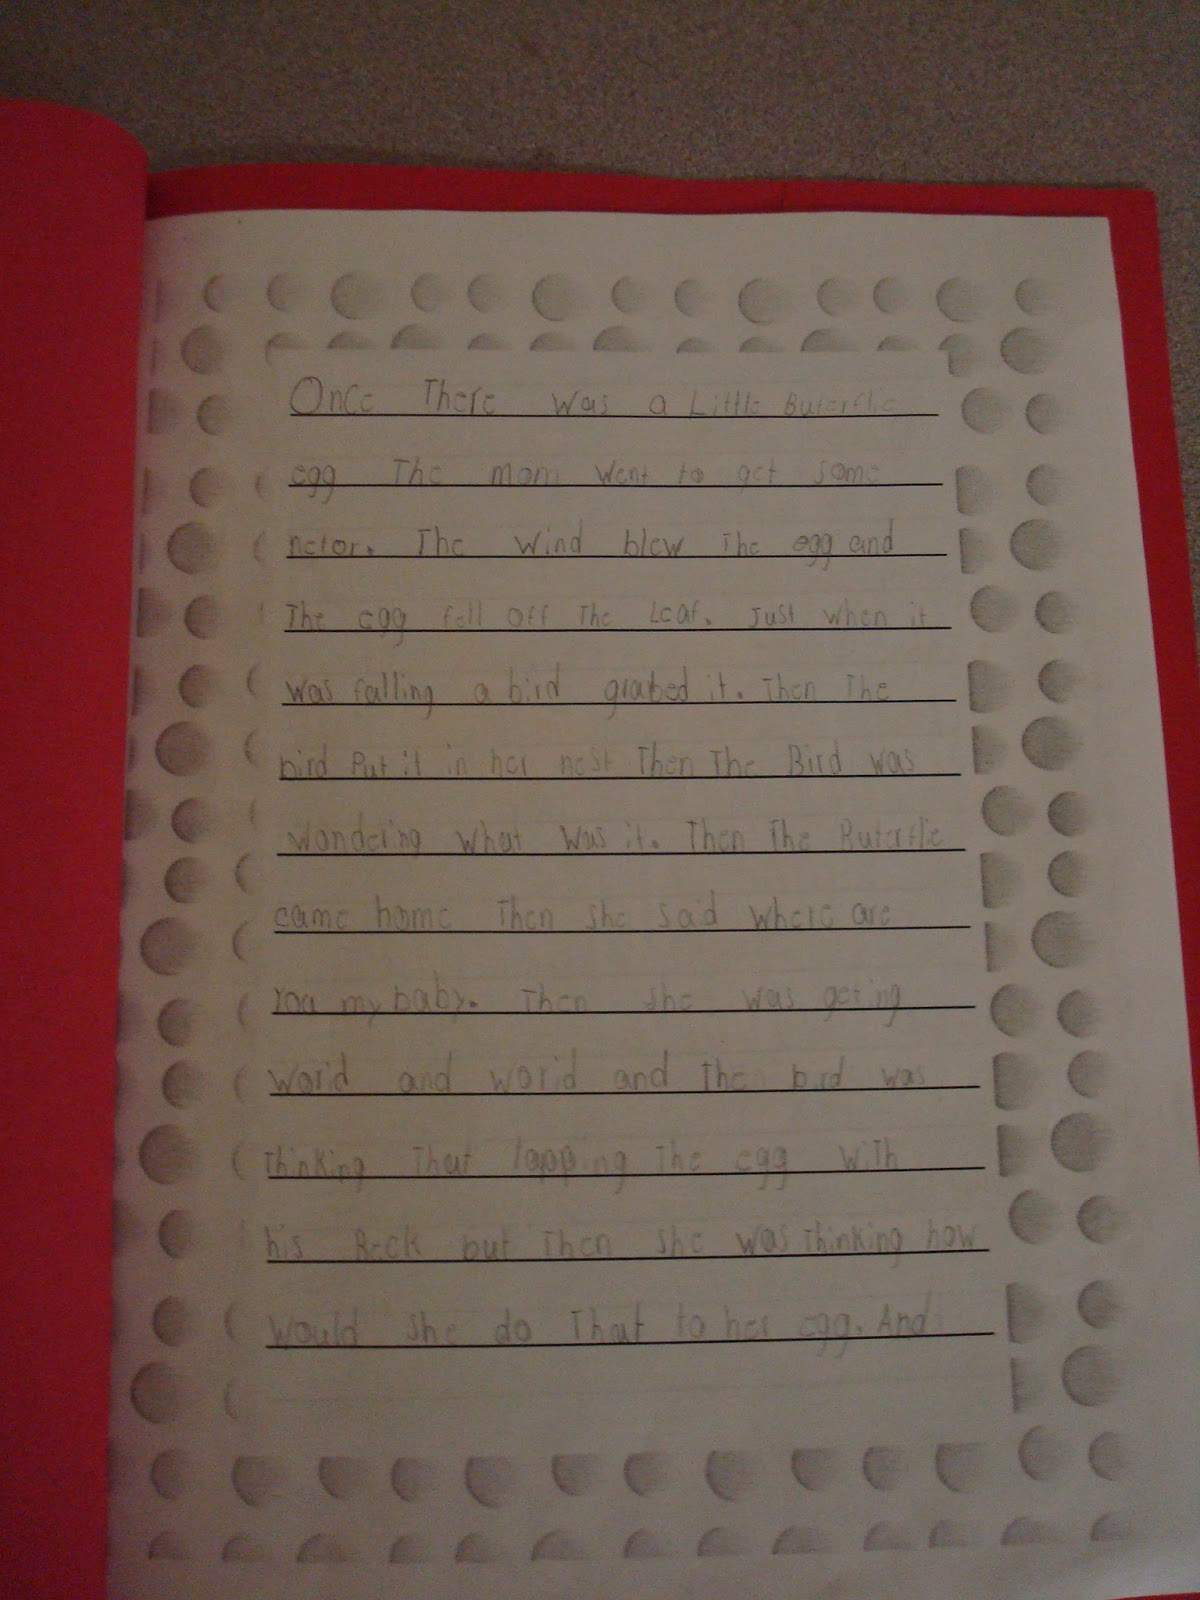 Once There Was a Little Buterflie
egg The mom Went to get some
nctor. The Wind blew The egg and
The egg fell Off The Leaf. Just when it
Was falling a bird grabed it. Then The
bird Put it in her nest Then The Bird was
Wondering What Was it. Then The Buterflie
came home Then she said Where are
You my baby. Then she was geting
Worid and worid and Then bird was
Thinking That tapping The egg With
his Beck but Then she was Thinking how
Would she do That to her egg. And